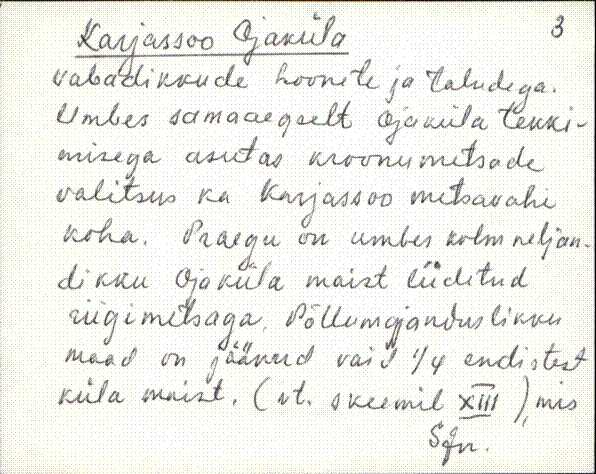 3
Karjassoo Ojaküla
vabadikkude hoonete ja taludega.
Umbes samaaegselt Ojaküla tekki-
misega asutas kroonumetsade
valitsus ka Karjassoo metsavahi
koha. Praegu on umbes kolmneljan-
dikku Ojaküla maist liidetud
riigimetsaga. Põllumajanduslikku
maad on jäänud vaid 1/4 endistest
küla maist. (vt. skeemil XIII), mis